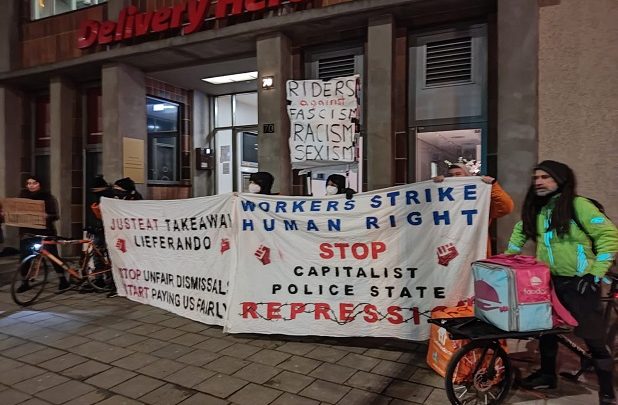 Delivery Hero
70
RIDERS
against
FASCISM
RACISM
SEXISM
JUSTEAT TAKEAWAY
LIEFERANDO
STOP UNFAIR DISMISSALS
START PAYING US FAIRLY
WORKERS STRIKE
HUMAN RIGHT
STOP
CAPITALIST
POLICE STATE
REPRESSI